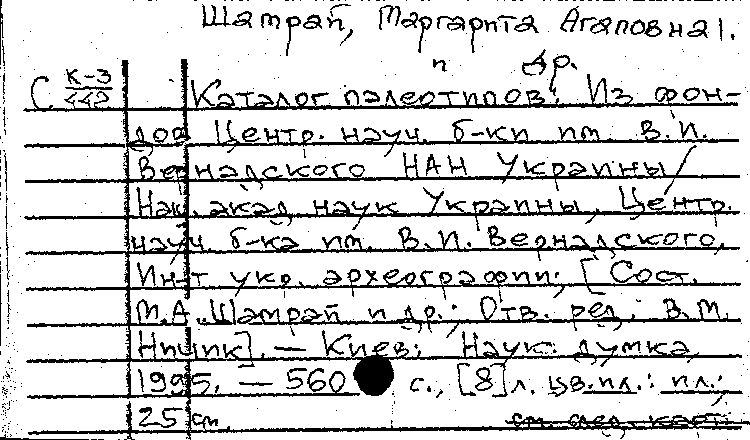 Шатрай, Маргарита Агаповна 1.
и др.
С К-3/442 Каталог палеотипов: Из фон-
дов Центр. науч. б-ки им. В.И.
Вернадского НАН Украины /
Нац. акад. наук Украины, Центр.
науч. б-ка им. В.И. Вернадского,
Ин-т укр. археографии; [Сост.
М.А. Шатрай и др.; Отв. ред. В.М.
Ничик]. — Киев: Наук. думка,
1995. — 560 с., [8] л. цв. ил.: ил.;
25 см. см. след. карт.